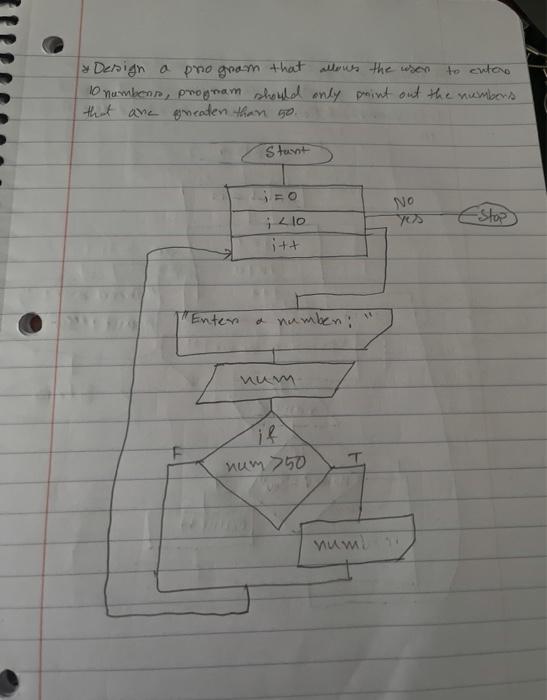 * Design a program that allows the user to enter
10 numbers, program should only print out the numbers
that are greater than 50.
Start
i = 0
i < 10
i++
No
Yes
Stop
"Enter a number: "
num
if
num > 50
F
T
num